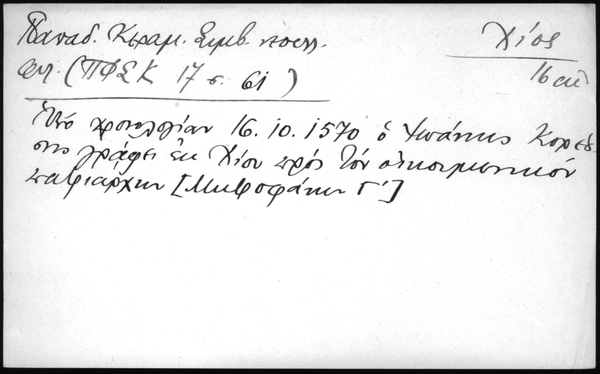 Παπαδ. Κεραμ. Συμβ. νεοελλ.
φιλ. (ΠΦΣΚ 17 σ. 61)
Χίος
16 αι.
Ὑπό χρονολογίαν 16.10.1570 ὁ Ἰωάννης Κορέσ-
σης γράφει ἐκ Χίου πρός τόν οἰκουμενικόν
πατριάρχην [Μητροφάνην Γ']